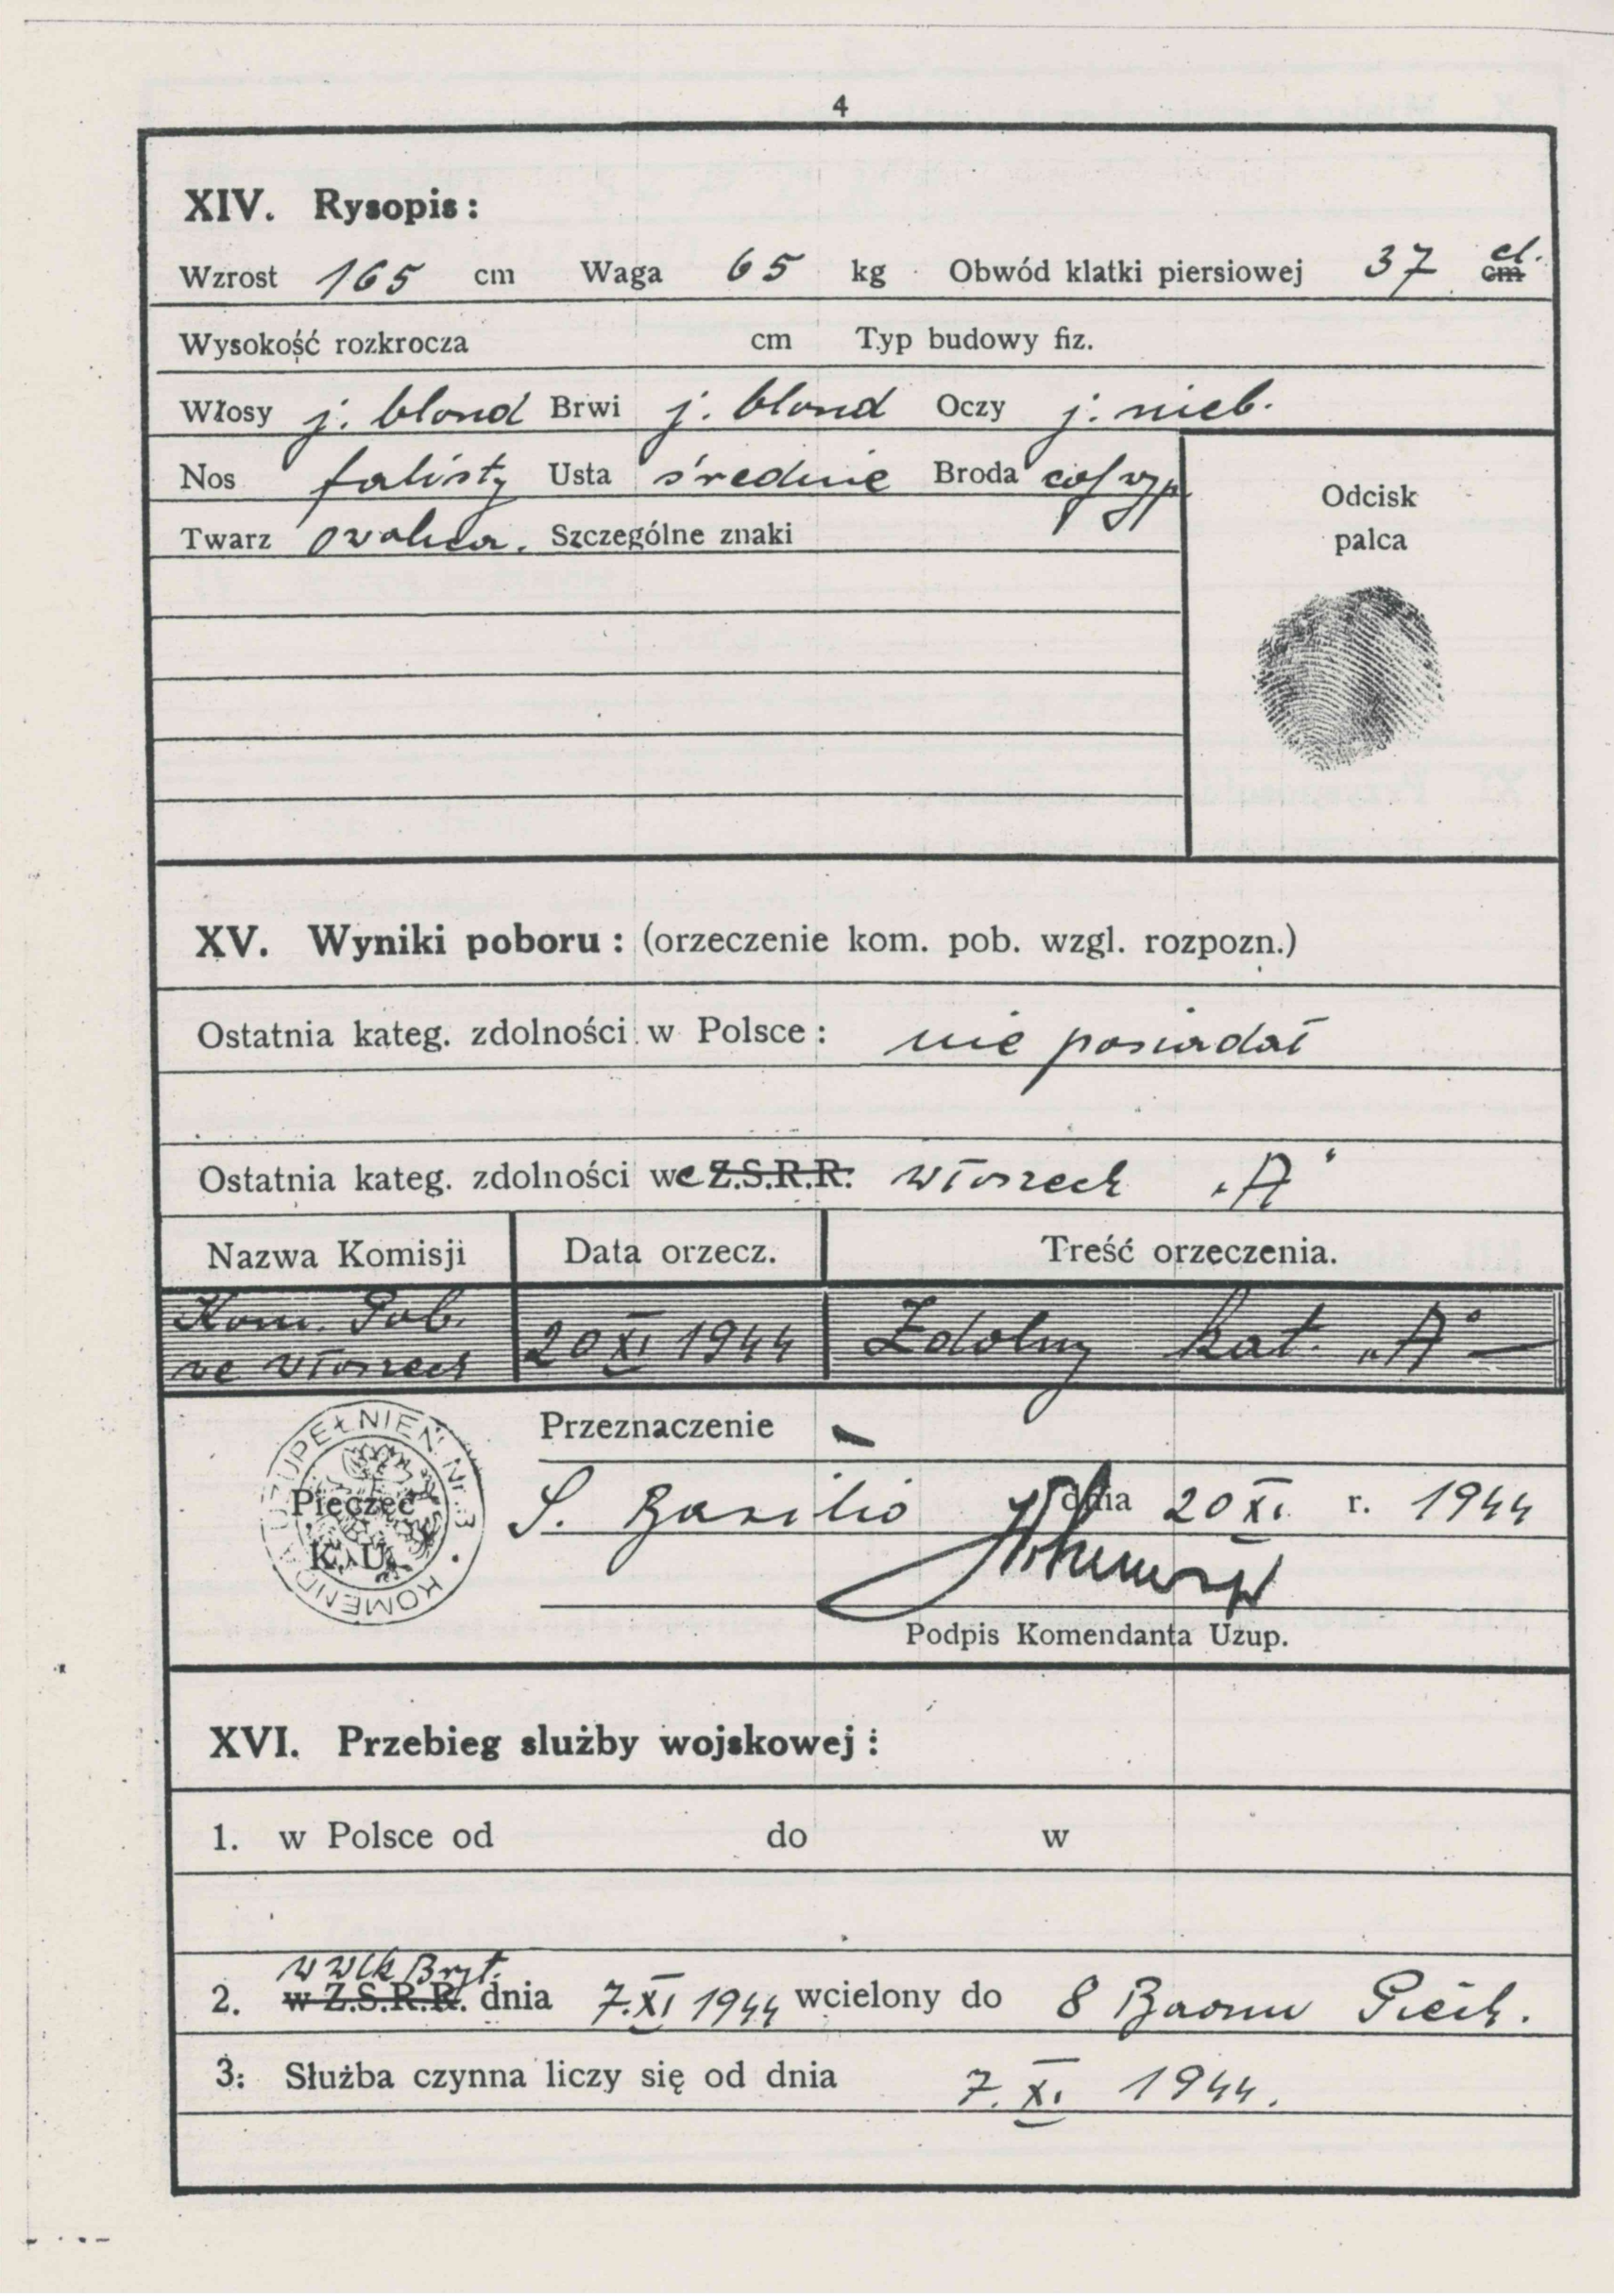 4
XIV. Rysopis:
Wzrost 165 cm Waga 65 kg Obwód klatki piersiowej 37 cm cl.
Wysokość rozkrocza cm Typ budowy fiz.
Włosy j. blond Brwi j. blond Oczy j. nieb.
Nos falisty Usta średnie Broda
Twarz owalna. Szczególne znaki
Odcisk
palca
XV. Wyniki poboru: (orzeczenie kom. pob. wzgl. rozpozn.)
Ostatnia kateg. zdolności w Polsce: nie posiadał
Ostatnia kateg. zdolności we Z.S.R.R: Włoszech „A"
Nazwa Komisji Data orzecz. Treść orzeczenia.
Kom. Pob. we Włoszech 20 XI 1944 Zdolny kat. „A" —
Przeznaczenie —
KOMENDA UZUPEŁNIEŃ Nr. 3
Pieczęć
K. U.
S. Basilio dnia 20 XI. r. 1944
Podpis Komendanta Uzup.
XVI. Przebieg służby wojskowej:
1. w Polsce od do w
w Wlk Bryt.
2. w Z.S.R.R. dnia 7.XI 1944 wcielony do 8 Baonu Piech.
3: Służba czynna liczy się od dnia 7. XI. 1944.